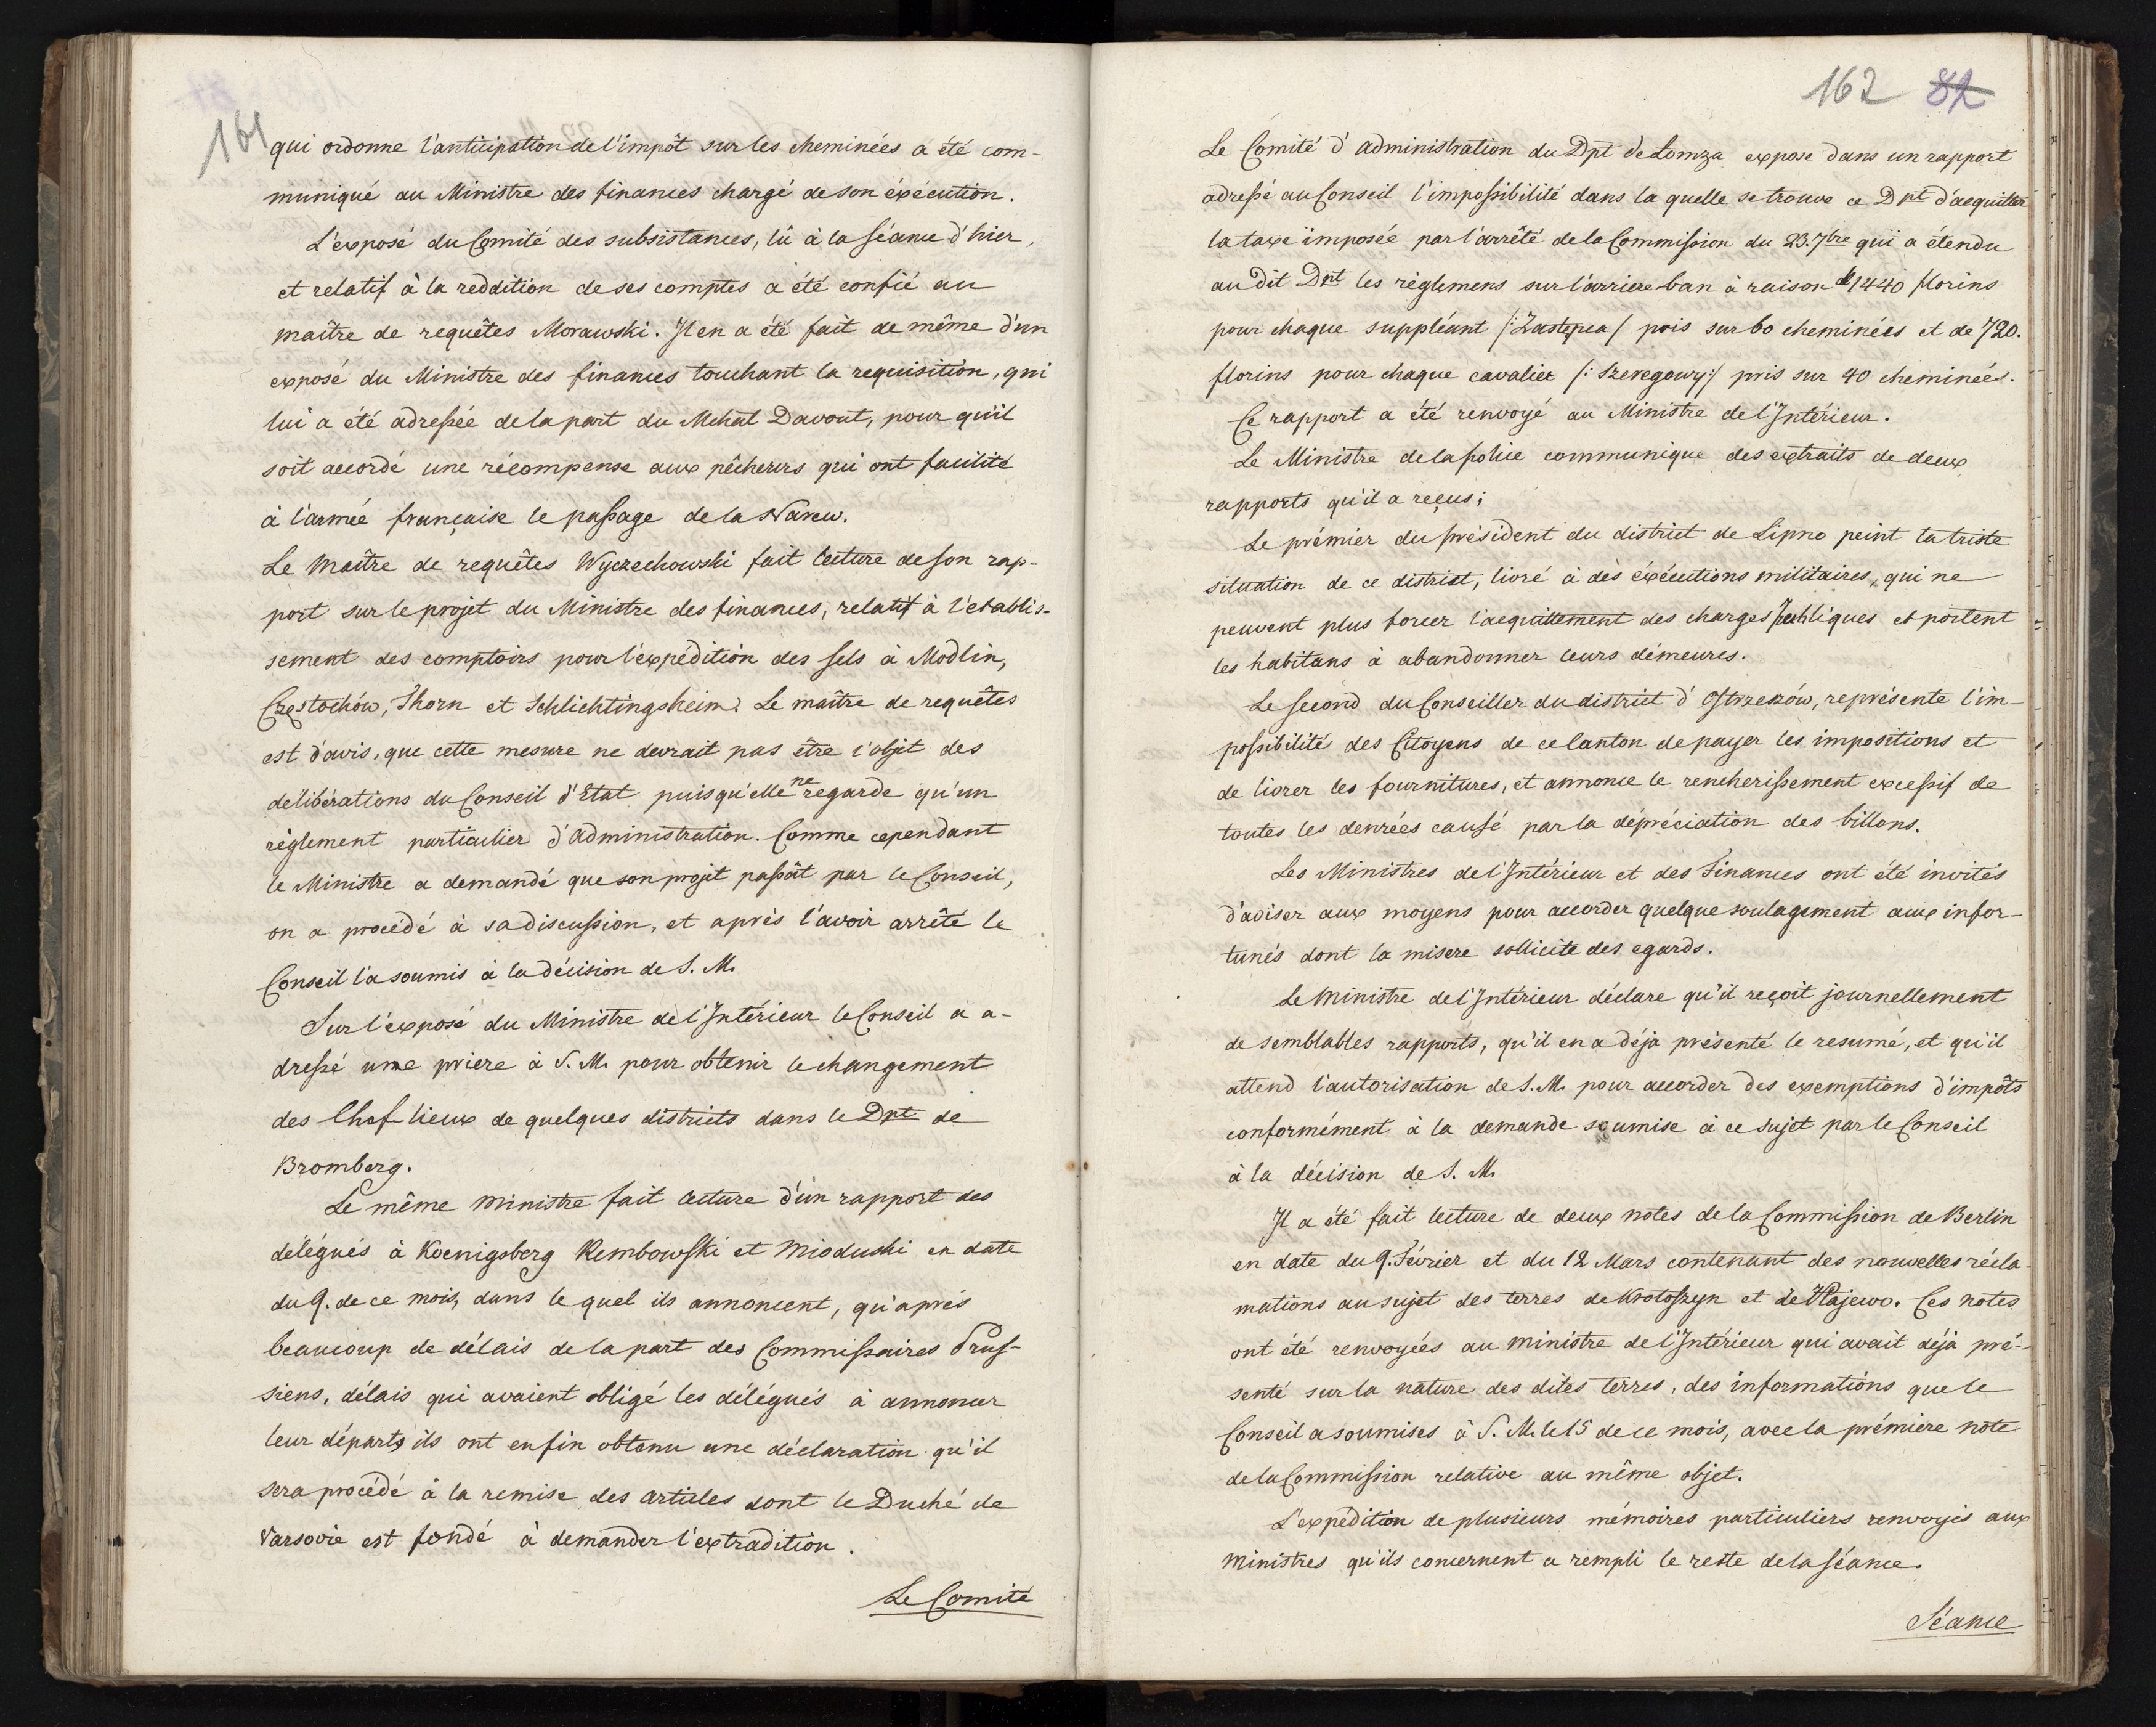 161
qui ordonne l'anticipation de l'impôt sur les cheminées a été com-
muniqué au Ministre des finances chargé de son éxécution.
L'exposé du Comité des subsistances, lû à la séance d'hier,
et relatif à la reddition de ses comptes a été confié au
maître de requêtes Morawski. Il en a été fait de même d'un
exposé du Ministre des finances touchant la requisition, qui
lui a été adressée de la part du Mchal Davout, pour qu'il
soit accordé une récompense aux pêcheurs qui ont facilité
à l'armée française le passage de la Narew.
Le Maître de requêtes Wyczechowski fait lecture de son rap-
port sur le projet du Ministre des finances, relatif à l'etablis-
sement des comptoirs pour l'expédition des sels à Modlin,
Częstochów, Thorn et Schlichtingsheim. Le maître de requêtes
est d'avis, que cette mesure ne devrait pas être l'objet des
délibérations du Conseil d'Etat puisqu'elle ne regarde qu'un
règlement particulier d'administration. Comme cependant
le Ministre a demandé que son projet passât par le Conseil,
on a procédé à sa discussion, et après l'avoir arrêté le
Conseil l'a soumis à la décision de S. M.
Sur l'exposé du Ministre de l'Intérieur le Conseil a a-
dressé une priere à S. M. pour obtenir le changement
des Chef lieux de quelques districts dans le Dpt de
Bromberg.
Le même Ministre fait lecture d'un rapport des
délégués à Koenigsberg Rembowski et Mioduski en date
du 9. de ce mois, dans le quel ils annoncent, qu'aprés
beaucoup de délais de la part des Commissaires Prus-
siens, délais qui avaient obligé les délégués à annoncer
leur départ, ils ont enfin obtenu une déclaration qu'il
sera procédé à la remise des articles dont le Duché de
Varsovie est fondé à demander l'extradition.
Le Comité
162 82
Le Comité d'administration du Dpt de Lomza expose dans un rapport
adressé au Conseil l'impossibilité dans la quelle se trouve ce Dpt d'acquitter
la taxe imposée par l'arrêté de la Commission du 23. 7bre qui a étendu
au dit Dpt les règlemens sur l'arriere-ban à raison de 1440 florins
pour chaque suppléant /: Zastępca / pris sur 60 cheminées et de 720.
florins pour chaque cavalier /: Szeregowy :/ pris sur 40 cheminées.
Ce rapport a été renvoyé au Ministre de l'Intérieur.
Le Ministre de la police communique des extraits de deux
rapports qu'il a reçus;
Le prémier du président du district de Lipno peint la triste
situation de ce district, livré à des éxécutions militaires, qui ne
peuvent plus forcer l'acquittement des charges publiques et portent
les habitans à abandonner leurs démeures.
Le second du Conseiller du district d'Ostrzeszów, représente l'im-
possibilité des Citoyens de ce Canton de payer les impositions et
de livrer les fournitures, et annonce le rencherissement excessif de
toutes les denrées causé par la dépréciation des billons.
Les Ministres de l'Intérieur et des Finances ont été invités
d'aviser aux moyens pour accorder quelque soulagement aux infor-
tunés dont la misere sollicite des egards.
Le Ministre de l'Intérieur déclare qu'il reçoit journellement
de semblables rapports, qu'il en a déja présenté le resumé, et qu'il
attend l'autorisation de S. M. pour accorder des exemptions d'impôts
conformément à la demande soumise à ce sujet par le Conseil
à la décision de S. M.
Il a été fait lecture de deux notes de la Commission de Berlin
en date du 9. Février et du 12 Mars contenant des nouvelles récla-
mations au sujet des terres de Krotoszyn et de. Ces notes
ont été renvoyées au Ministre de l'Intérieur qui avait déjà pré-
senté sur la nature des dites terres, des informations que le
Conseil a soumises à S. M. le 15 de ce mois, avec la prémiere note
de la Commission relative au même objet.
L'expédition de plusieurs mémoires particuliers renvoyés aux
Ministres qu'ils concernent a rempli le reste de la séance.
Séance